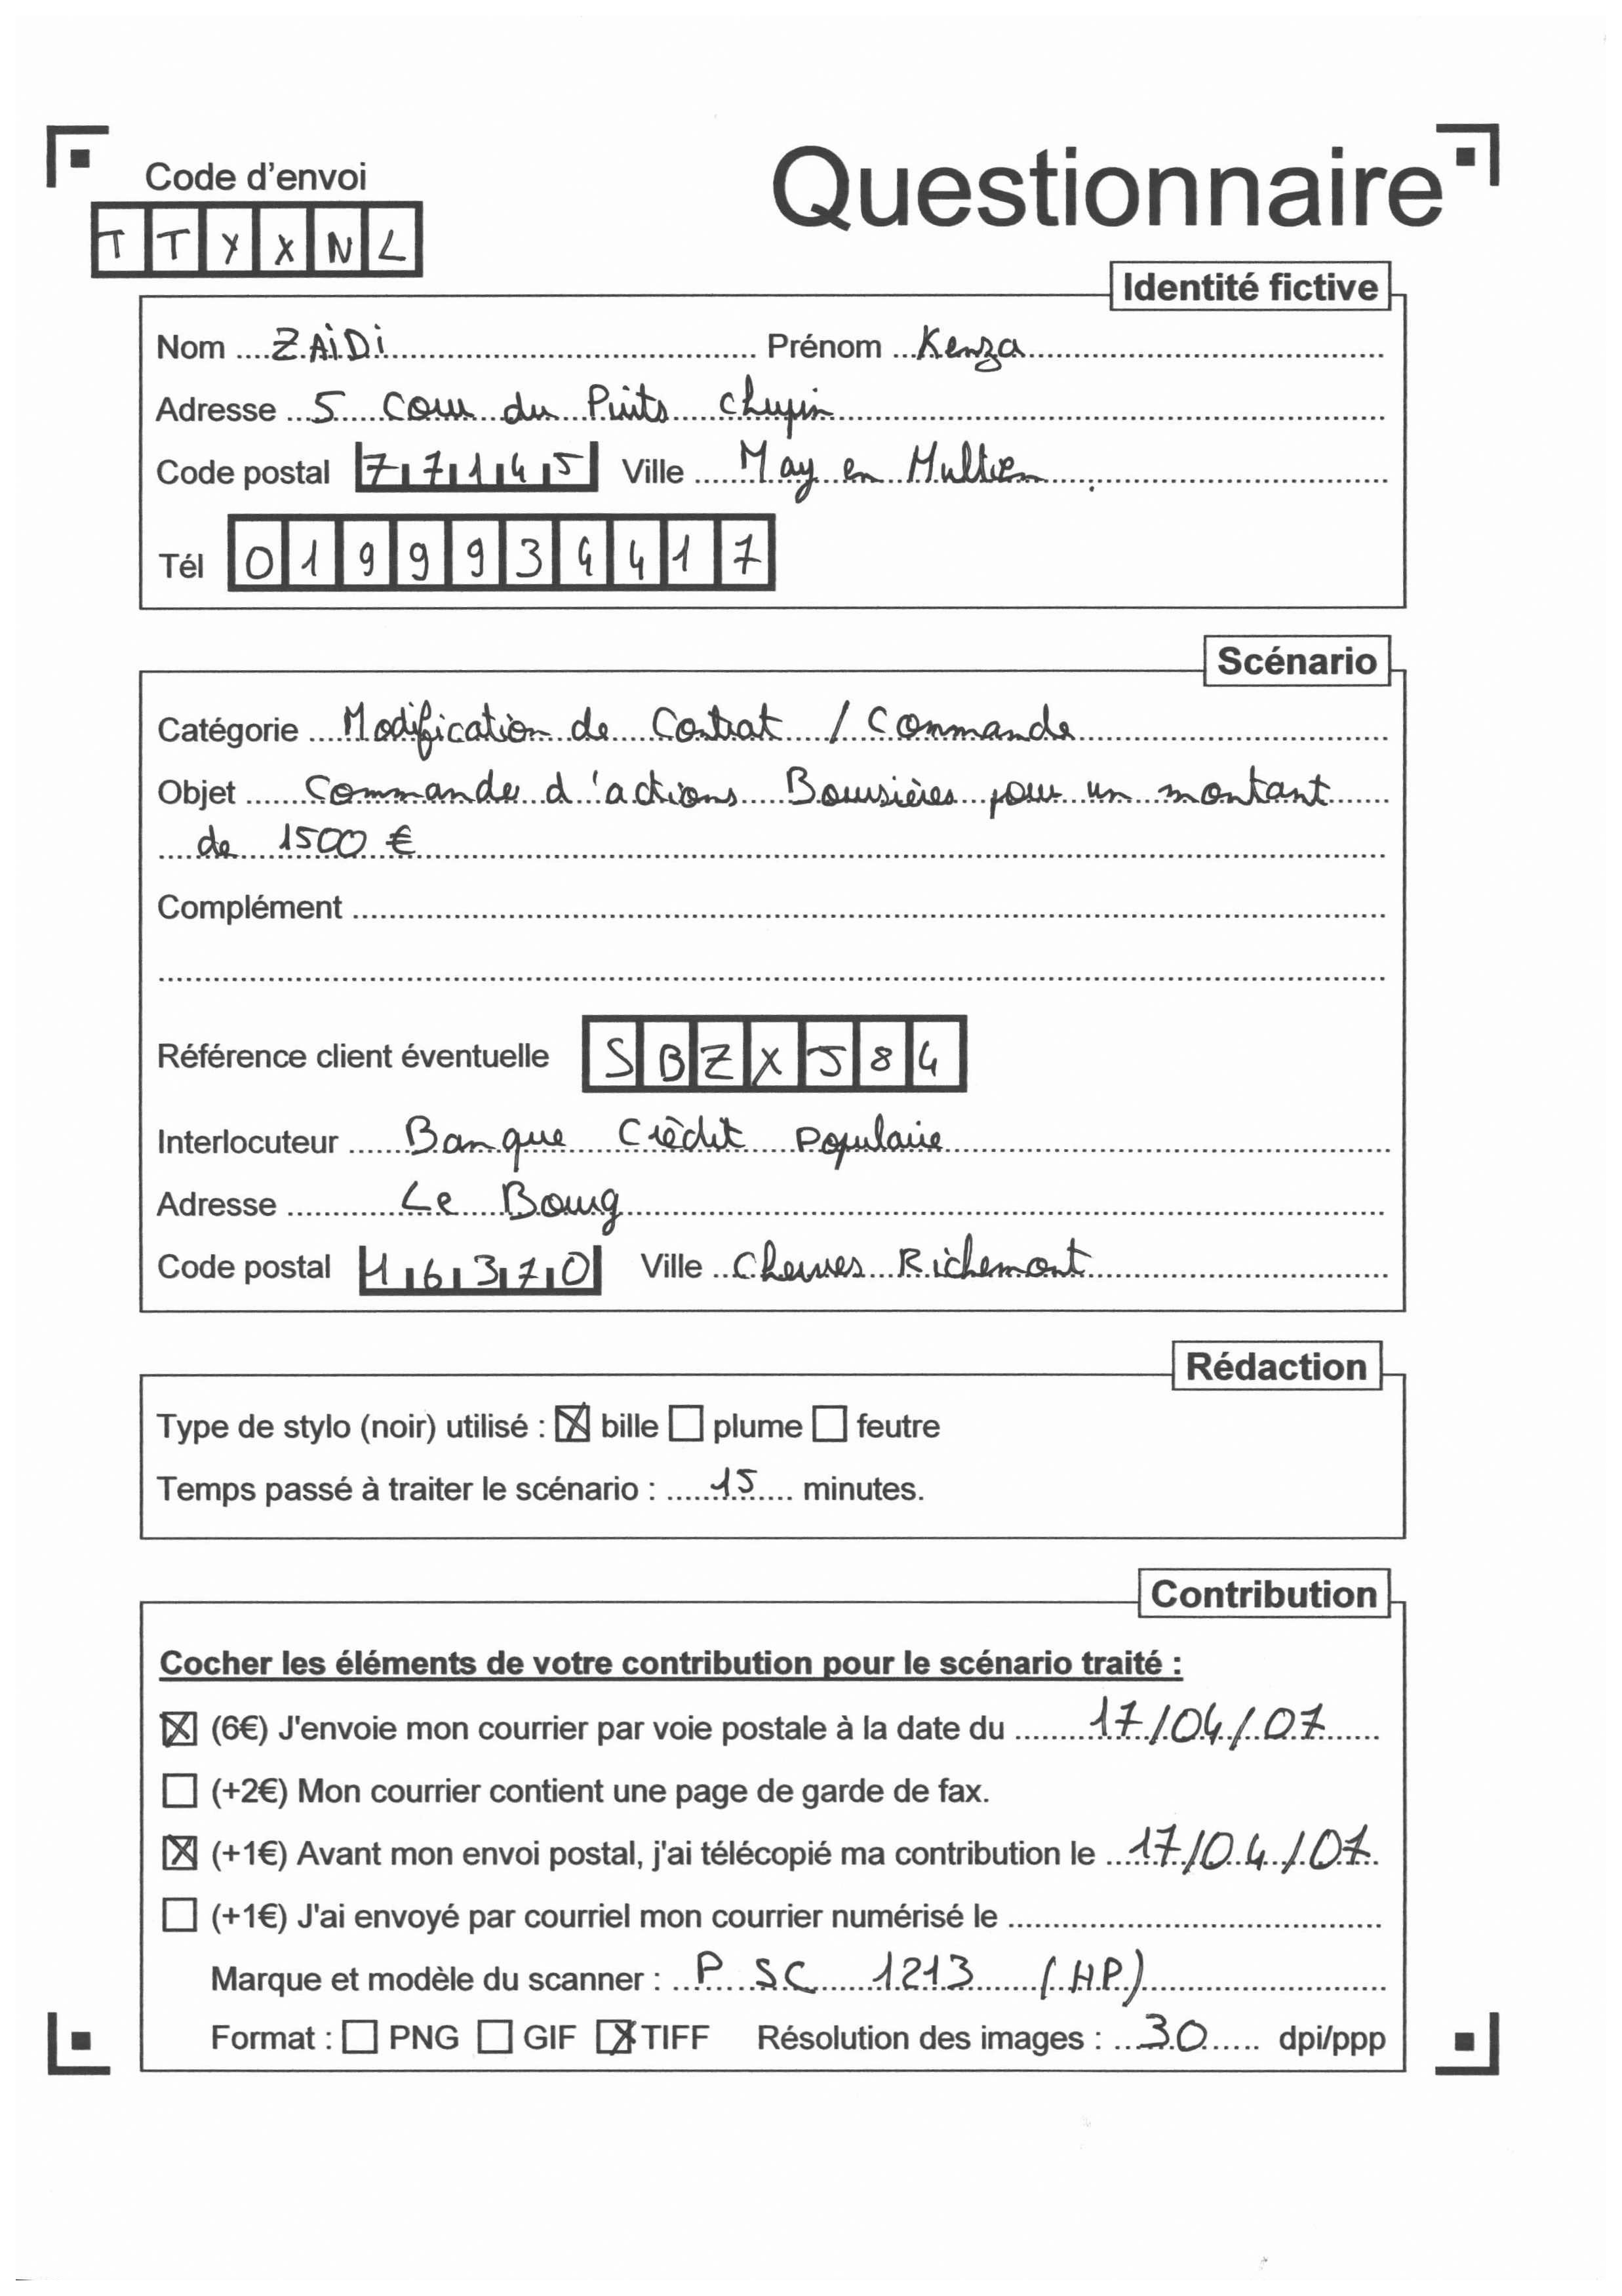 Code d'envoi
Questionnaire
TTYXNL
Identité fictive
Nom ZAiDi Prénom Kenza
Adresse 5 cour du Puits chupin
Code postal 77145 Ville May en Multien
Tél 0199934417
Scénario
Catégorie Modification de Contrat / Commande
Objet Commande d'actions Boursières pour un montant
de 1500 €
Complément
Référence client éventuelle SBZXJ84
Interlocuteur Banque Crèdit Populaire
Adresse Le Bourg
Code postal 16370 Ville Cherves Richemont
Rédaction
Type de stylo (noir) utilisé : ☒ bille ☐ plume ☐ feutre
Temps passé à traiter le scénario : 15 minutes.
Contribution
Cocher les éléments de votre contribution pour le scénario traité :
☒ (6€) J'envoie mon courrier par voie postale à la date du 17/04/07
☐ (+2€) Mon courrier contient une page de garde de fax.
☒ (+1€) Avant mon envoi postal, j'ai télécopié ma contribution le 17/04/07
☐ (+1€) J'ai envoyé par courriel mon courrier numérisé le
Marque et modèle du scanner : PSC 1213 (HP)
Format : ☐ PNG ☐ GIF ☒ TIFF Résolution des images : 30 dpi/ppp